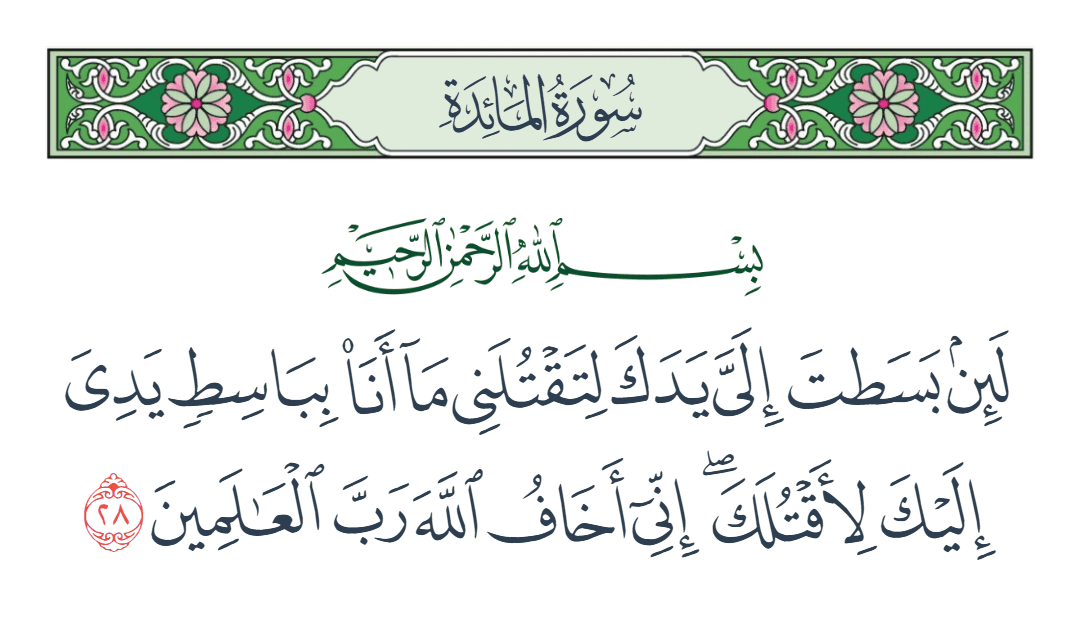 سُورَةُ المَائِدَةِ
بِسْمِ ٱللَّهِ ٱلرَّحْمَٰنِ ٱلرَّحِيمِ
لَئِنۢ بَسَطتَ إِلَىَّ يَدَكَ لِتَقْتُلَنِى مَآ أَنَا۠ بِبَاسِطٍ يَدِىَ
إِلَيْكَ لِأَقْتُلَكَ ۖ إِنِّىٓ أَخَافُ ٱللَّهَ رَبَّ ٱلْعَـٰلَمِينَ ٢٨